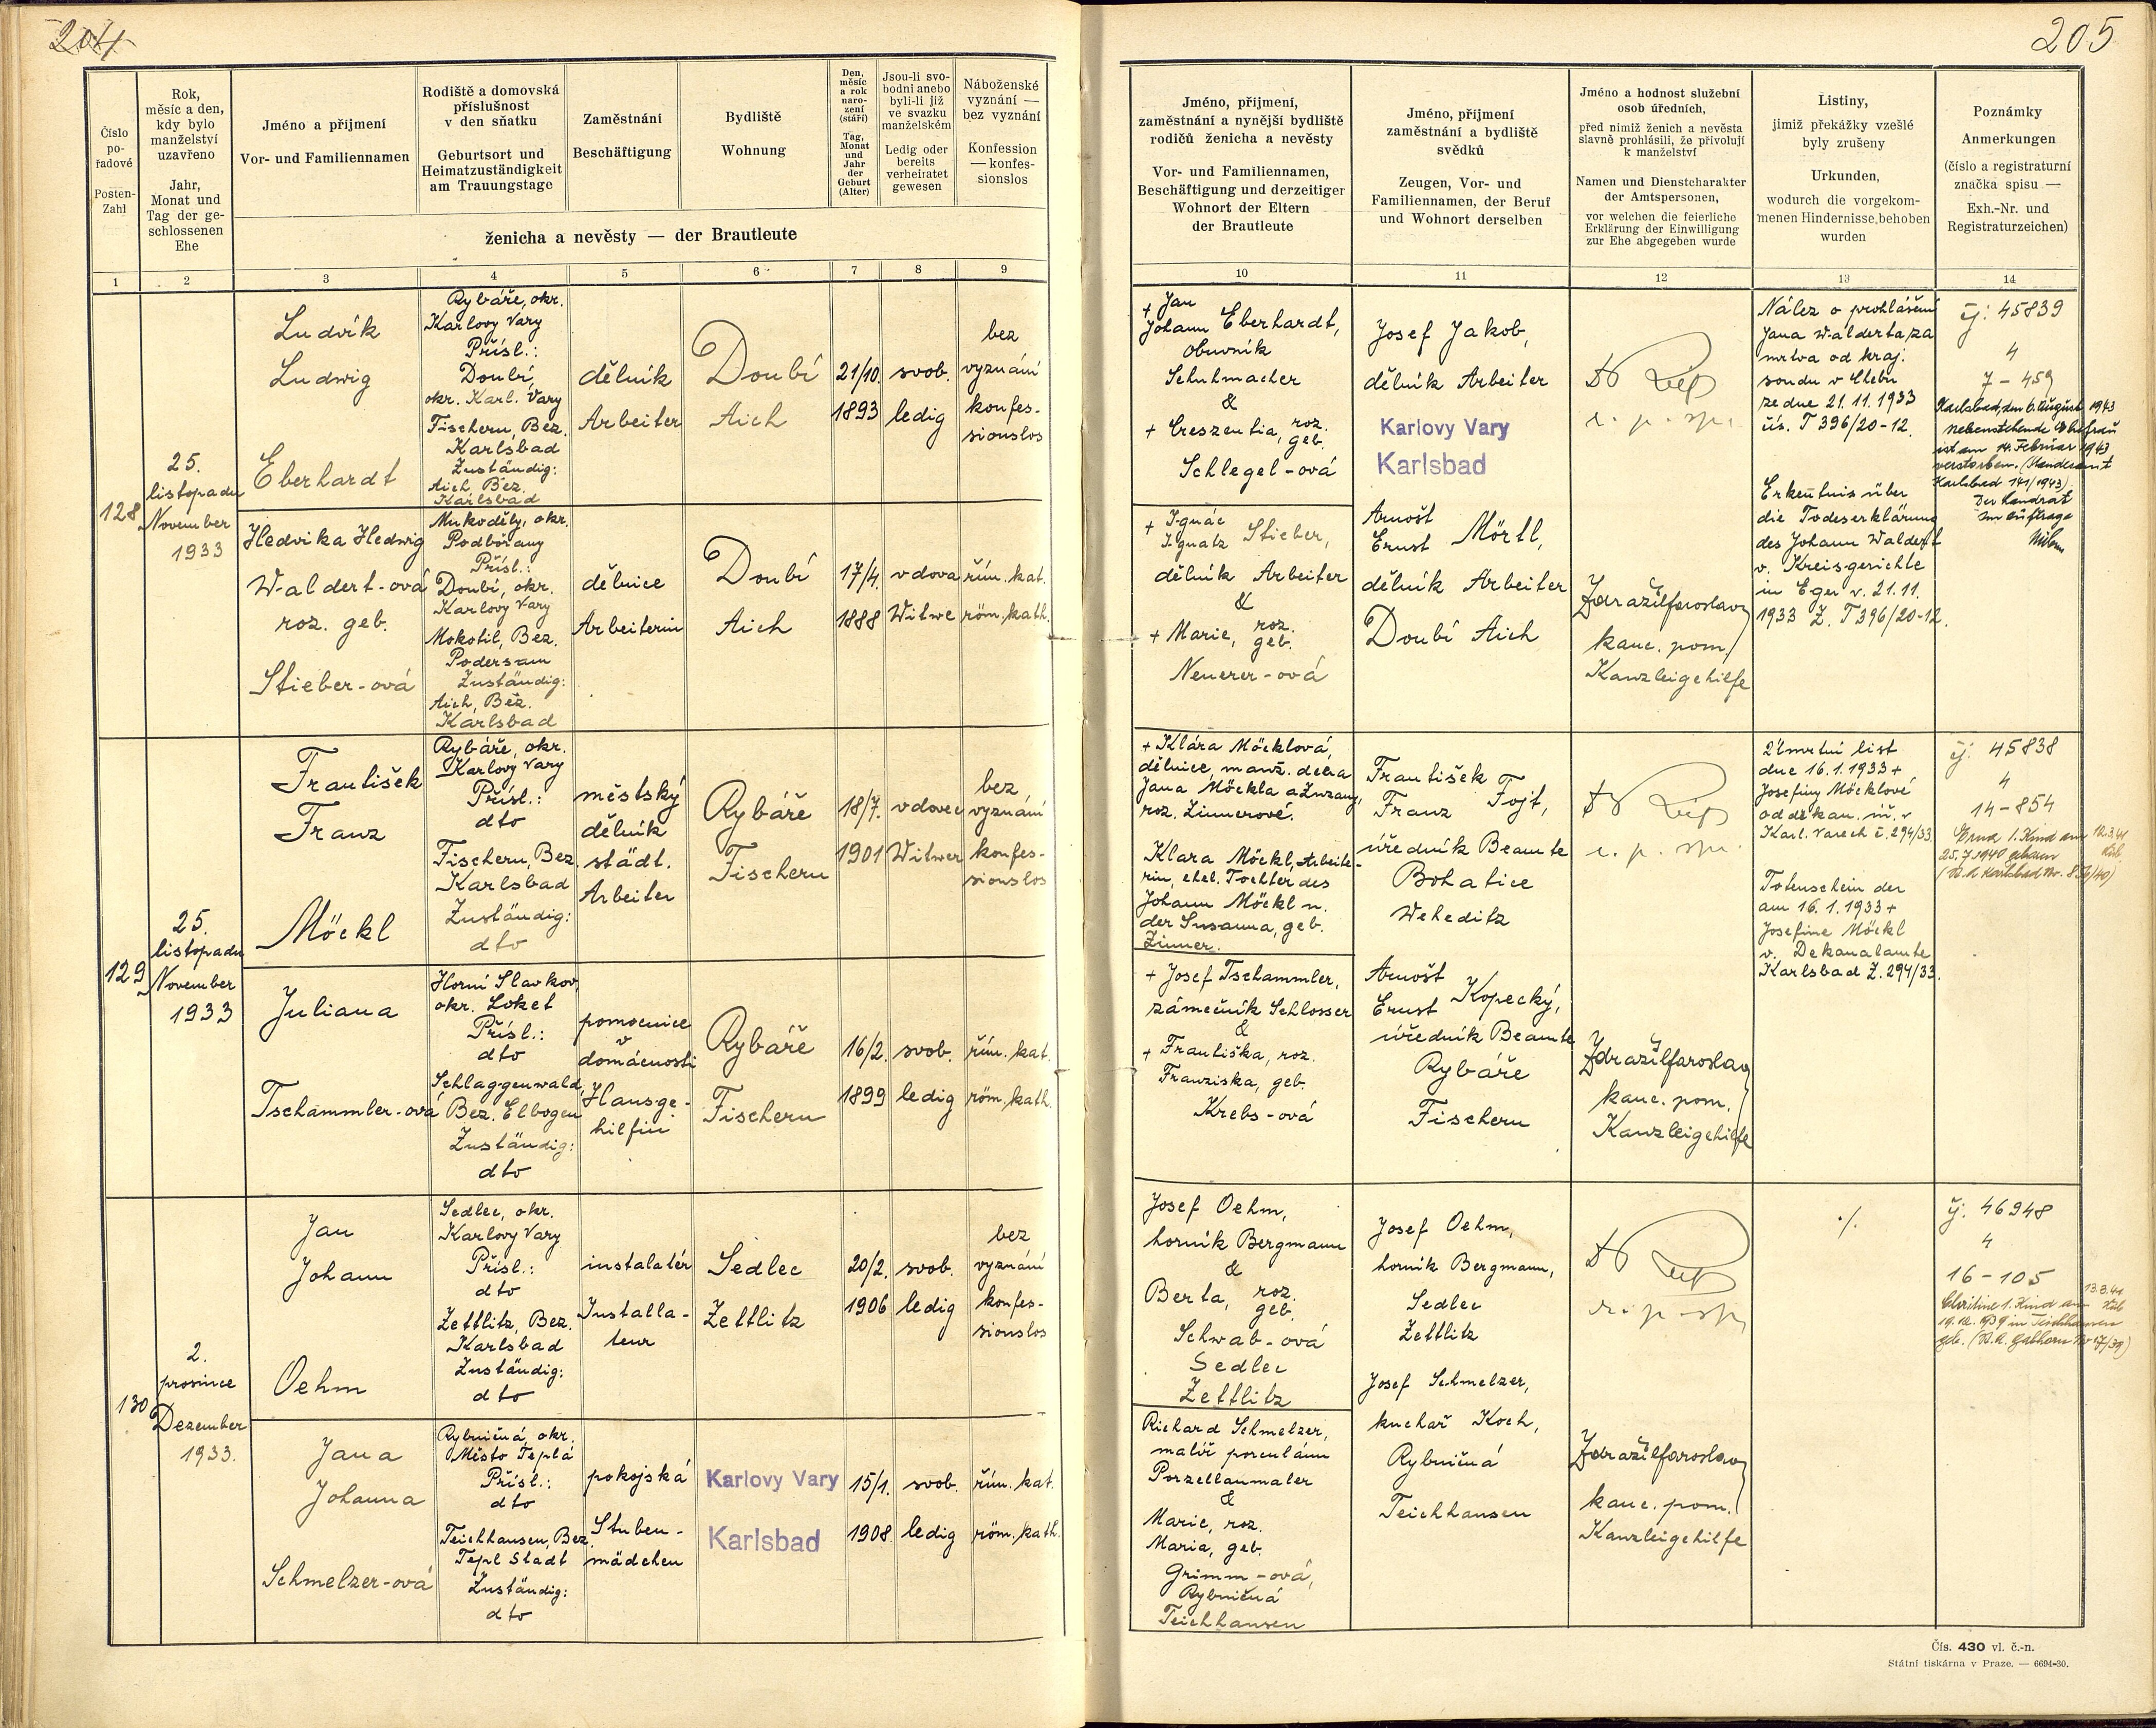 204
205
Číslo
po-
řadové
Posten-
Zahl
Rok,
měsíc a den,
kdy bylo
manželství
uzavřeno
Jahr,
Monat und
Tag der ge-
schlossenen
Ehe
Jméno a příjmení
Vor- und Familiennamen
Rodiště a domovská
příslušnost
v den sňatku
Geburtsort und
Heimatzuständigkeit
am Trauungstage
Zaměstnání
Beschäftigung
Bydliště
Wohnung
Den,
měsíc
a rok
naro-
zení
(stáří)
Tag,
Monat
und
Jahr
der
Geburt
(Alter)
Jsou-li svo-
bodni anebo
byli-li již
ve svazku
manželském
Ledig oder
bereits
verheiratet
gewesen
Náboženské
vyznání —
bez vyznání
Konfession
— konfes-
sionslos
ženicha a nevěsty — der Brautleute
1 2 3 4 5 6 7 8 9
Jméno, příjmení,
zaměstnání a nynější bydliště
rodičů ženicha a nevěsty
Vor- und Familiennamen,
Beschäftigung und derzeitiger
Wohnort der Eltern
der Brautleute
Jméno, přijmení
zaměstnání a bydliště
svědků
Zeugen, Vor- und
Familiennamen, der Beruf
und Wohnort derselben
Jméno a hodnost služební
osob úředních,
před nimiž ženich a nevěsta
slavně prohlásili, že přivolují
k manželství
Namen und Dienstcharakter
der Amtspersonen,
vor welchen die feierliche
Erklärung der Einwilligung
zur Ehe abgegeben wurde
Listiny,
jimiž překážky vzešlé
byly zrušeny
Urkunden,
wodurch die vorgekom-
menen Hindernisse, behoben
wurden
Poznámky
Anmerkungen
(číslo a registraturní
značka spisu —
Exh.-Nr. und
Registraturzeichen)
10 11 12 13 14
128
25.
listopadu
November
1933
Ludvík
Ludwig
Eberhardt
Rybáře, okr.
Karlovy Vary
Přísl.:
Doubí,
okr. Karl. Vary
Fischern, Bez.
Karlsbad
Zuständig:
Aich Bez.
Karlsbad
dělník
Arbeiter
Doubí
Aich
21/10.
1893
svob.
ledig
bez
vyznání
konfes-
sionslos
Hedvika Hedwig
Waldert-ová
roz. geb.
Stieber-ová
Mukoděly, okr.
Podbořany
Přísl.:
Doubí, okr.
Karlovy Vary
Mokotil, Bez.
Podersam
Zuständig:
Aich, Bez.
Karlsbad
dělnice
Arbeiterin
Doubí
Aich
17/4.
1888
vdova
Witwe
řím. kat.
röm. kath.
+ Jan
Johann Eberhardt,
obuvník
Schuhmacher
&
+ Creszentia, roz.
geb.
Schlegel-ová
+ Ignác
Ignatz Stieber,
dělník Arbeiter
&
+ Marie, roz.
geb.
Neuerer-ová
Josef Jakob,
dělník Arbeiter
Karlovy Vary
Karlsbad
Arnošt
Ernst Mörtl,
dělník Arbeiter
Doubí Aich
Zdražil Jaroslav
kanc. pom.
Kanzleigehilfe
Nález o prohlášení
Jana Walderta za
mrtva od kraj.
soudu v Chebu
ze dne 21.11.1933
čís. T 396/20-12.
Erkentnis über
die Todeserklärung
des Johann Waldert
v. Kreisgerichte
in Eger v. 21.11.
1933 Z. T 396/20-12.
čj: 45839
4
7 - 459
Karlsbad, den 6. August 1943
Nebenstehende Ehefrau
ist am 14. Februar 1943
verstorben. (Standesamt
Karlsbad 141/1943)
Der Landrat
Im Auftrage
129
25.
listopadu
November
1933
František
Franz
Möckl
Rybáře, okr.
Karlovy Vary
Přísl.:
dto
Fischern, Bez.
Karlsbad
Zuständig:
dto
městský
dělník
städt.
Arbeiter
Rybáře
Fischern
18/7.
1901
vdovec
Witwer
bez
vyznání
konfes-
sionslos
Juliana
Tschammler-ová
Horní Slavkov,
okr. Loket
Přísl.:
dto
Schlaggenwald,
Bez. Elbogen
Zuständig:
dto
pomocnice
v
domácnosti
Hausge-
hilfin
Rybáře
Fischern
16/2.
1899
svob.
ledig
řím. kat.
röm. kath.
+ Klára Möcklová,
dělnice, manž. dcera
Jana Möckla a Zuzany,
roz. Zinnerové.
Klara Möckl, Arbeite-
rin, ehel. Tochter des
Johann Möckl u.
der Susanna, geb.
Zinner.
+ Josef Tschammler,
zámečník Schlosser
&
+ Františka, roz.
Franziska, geb.
Krebs-ová
František
Franz Fojt,
úředník Beamte
Bohatice
Weheditz
Arnošt
Ernst Kopecký,
úředník Beamte
Rybáře
Fischern
Zdražil Jaroslav
kanc. pom.
Kanzleigehilfe
Úmrtní list
dne 16.1.1933 +
Josefiny Möcklové
od děkan. úř. v
Karl. Varech č. 294/33.
Totenschein der
am 16.1.1933 +
Josefine Möckl
v. Dekanalamte
Karlsbad Z. 294/33.
čj: 45838
4
14-854
1. Kind am 12.3.41
25.7.1940 geboren
130
2.
prosince
Dezember
1933.
Jan
Johann
Oehm
Sedlec, okr.
Karlovy Vary
Přísl.:
dto
Zettlitz, Bez.
Karlsbad
Zuständig:
dto
instalatér
Installa-
teur
Sedlec
Zettlitz
20/2.
1906
svob.
ledig
bez
vyznání
konfes-
sionslos
Jana
Johanna
Schmelzer-ová
Rybničná, okr.
Město Teplá
Přísl.:
dto
Teichhausen, Bez.
Tepl Stadt
Zuständig:
dto
pokojská
Stuben-
mädchen
Karlovy Vary
Karlsbad
15/1.
1908
svob.
ledig
řím. kat.
röm. kath.
Josef Oehm,
horník Bergmann
&
Berta, roz.
geb.
Schwab-ová
Sedlec
Zettlitz
Richard Schmelzer,
malíř porculánu
Porzellanmaler
&
Marie, roz.
Maria, geb.
Grimm-ová,
Rybničná
Teichhausen
Josef Oehm,
horník Bergmann,
Sedlec
Zettlitz
Josef Schmelzer,
kuchař Koch,
Rybničná
Teichhausen
Zdražil Jaroslav
kanc. pom.
Kanzleigehilfe
./.
čj. 46948
4
16-105
13.3.41
1. Kind am
19.12.1939 in Teichhausen
geb.
Čís. 430 vl. č.-n.
Státní tiskárna v Praze. — 6694-30.